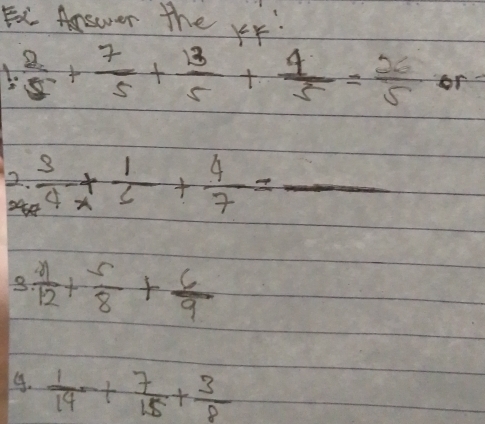 Ex: Answer the ff:
1. 2/5 + 7/5 + 13/5 + 4/5 = 26/5 or
2. 3/4 + 1/5 + 4/7 =
3. /12 + 5/8 + 6/9
4. 1/14 + 7/15 + 3/8